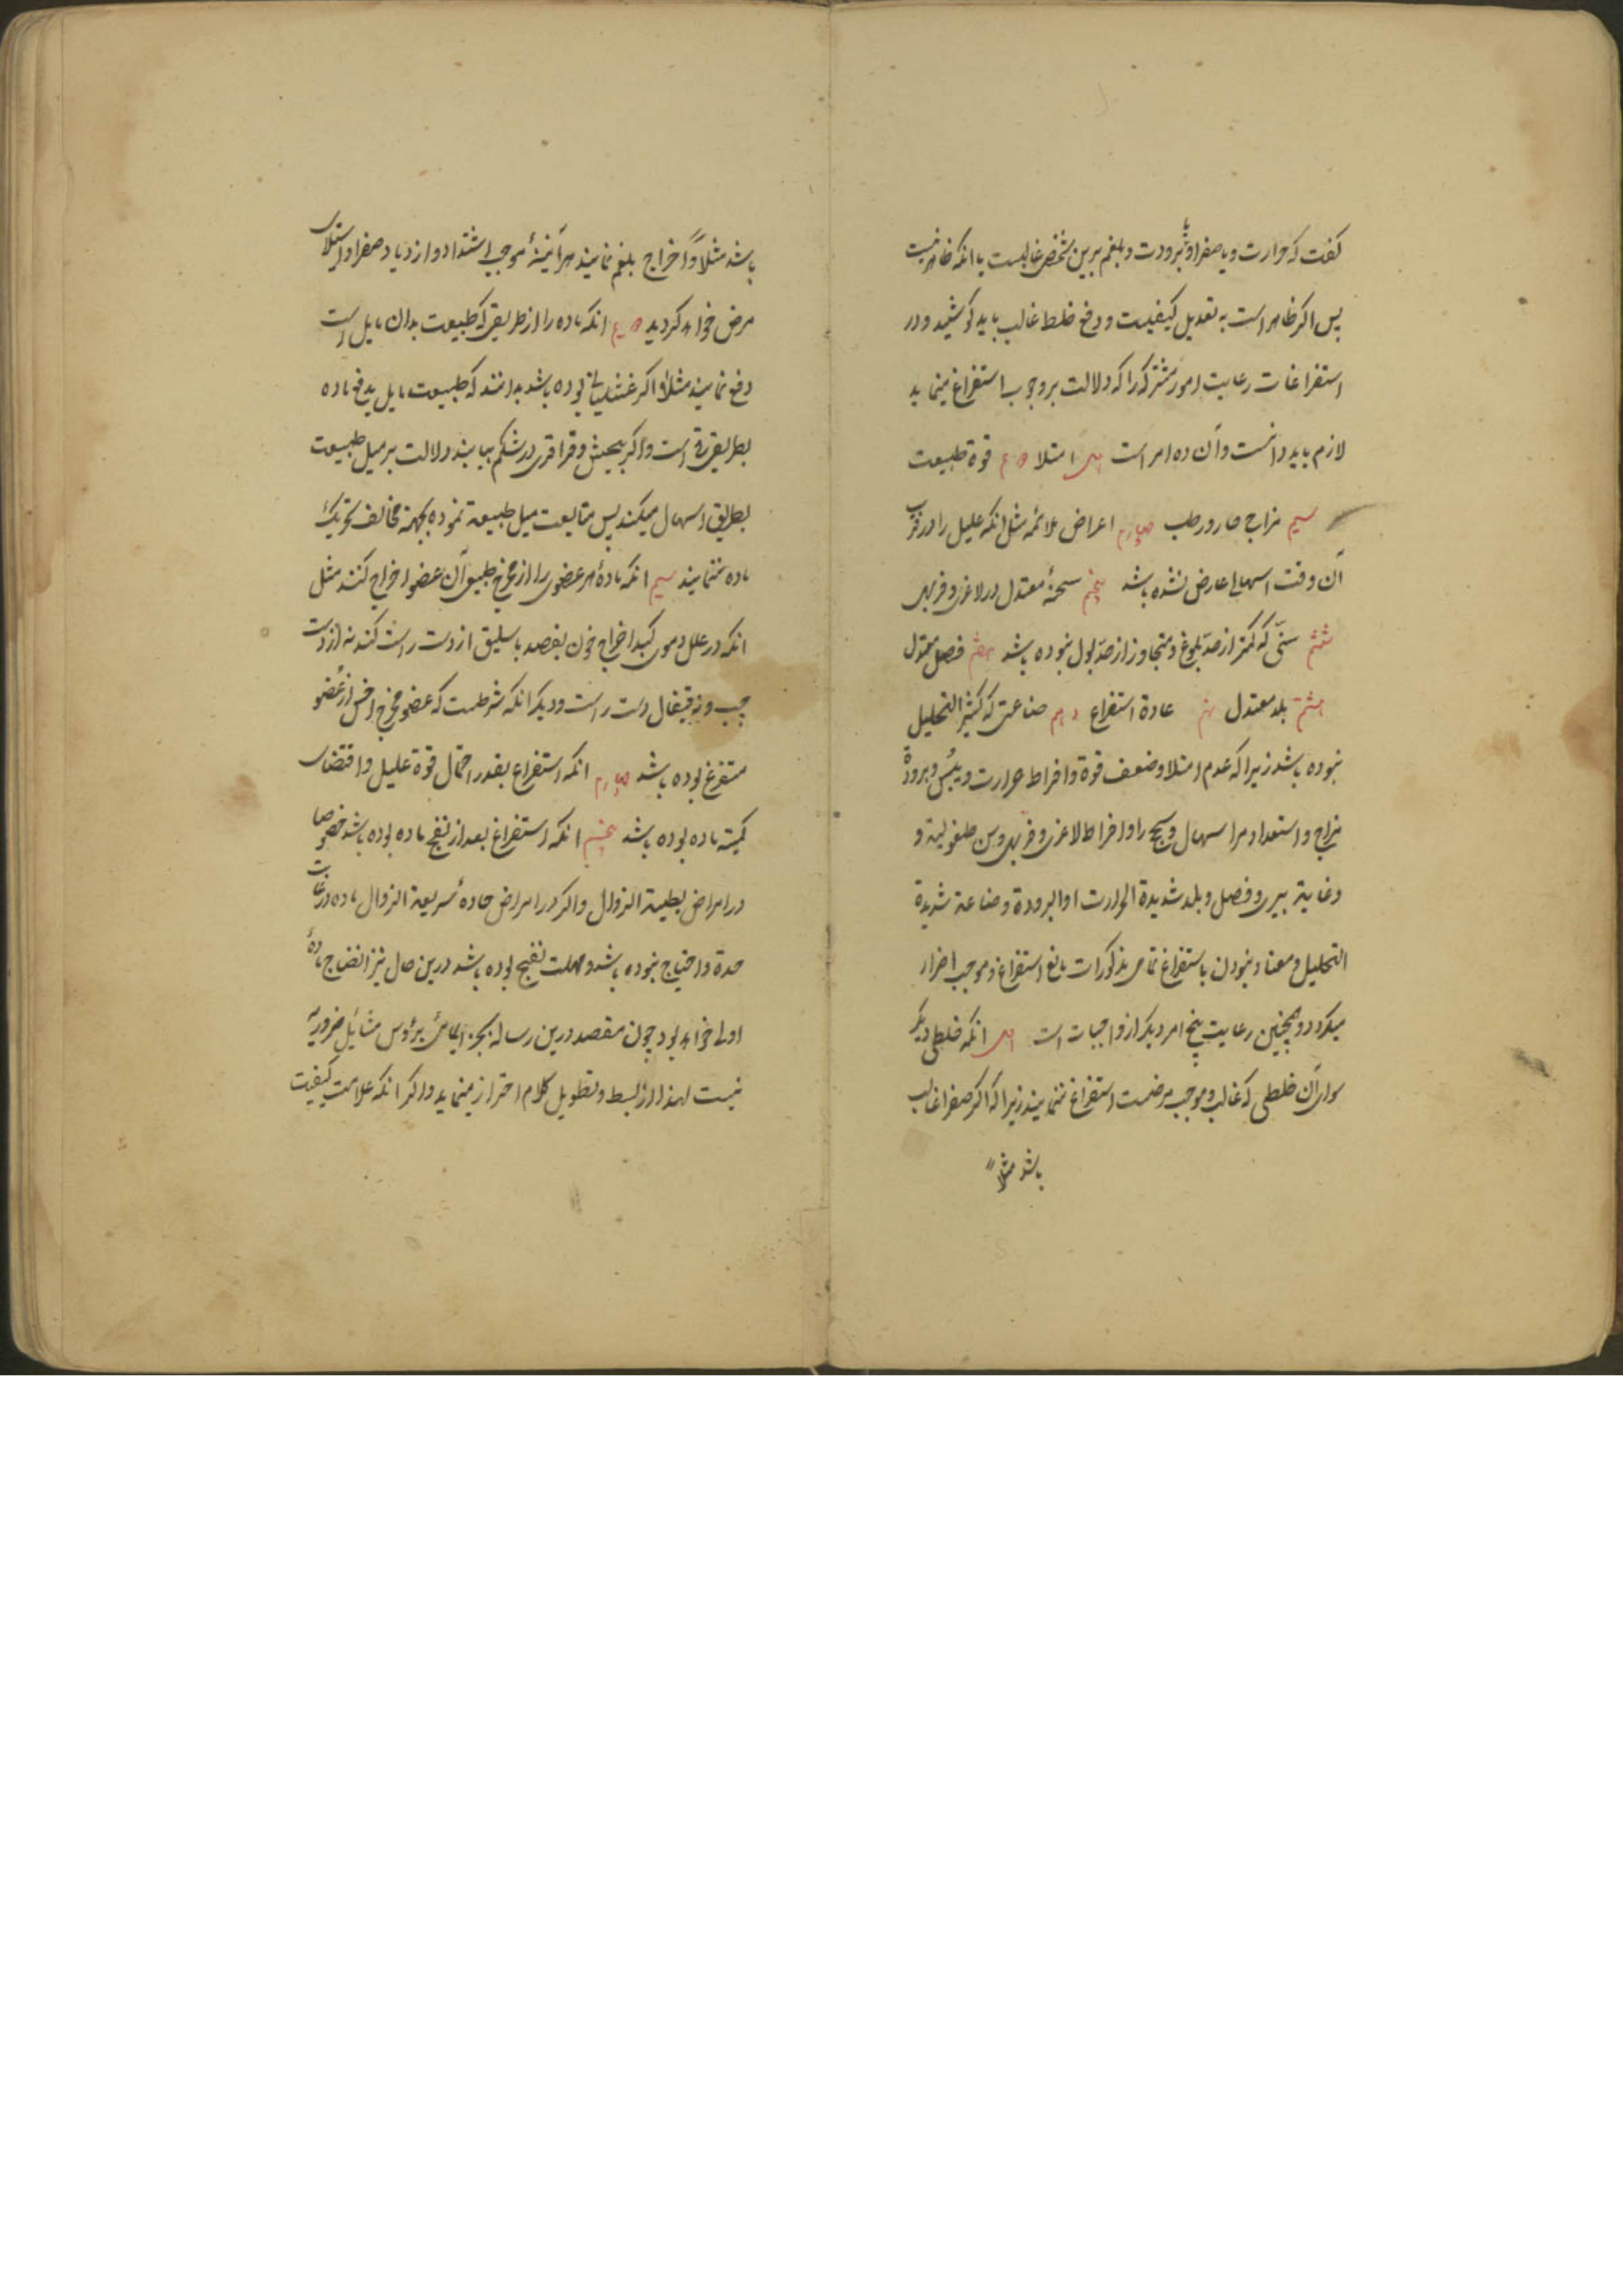 کفت که حرارت و یا صفرا و یا برودت و بلغم برین شخص غالبست یا انکه ظاهر نیست
پس اکر ظاهر است به تعدیل کیفیت و دفع خلط غالب باید کوشید و در
استفراغات رعایت امور مشترکه را که دلالت بر وجوب استفراغ مینماید
لازم باید دانست و آن ده امر است اول امتلا دویم قوة طبیعت
سیم مزاج حار و رطب چهارم اعراض ملائمه مثل انکه علیل را در قرب
آن وقت اسهالی عارض نشده باشد پنجم سحنهٔ معتدل در لاغری و فربهی
ششم سنّی که کمتر از حدّ بلوغ و متجاوز از حدّ بول نبوده باشد هفتم فصل معتدل
هشتم بلد معتدل نهم عادة استفراغ دهم صناعتی که کثیر التحلیل
نبوده باشد زیرا که عدم امتلا و ضعف قوة و افراط حرارت و یبس و برودة
مزاج و استعداد مرا سهال و سحج را و افراط لاغری و فربهی و سن طفولیة و
و غایة پیری و فصل و بلد شدیدة الحرارت او البرودة و صناعة شدیدة
التحلیل و معتاد نبودن باستفراغ تمامی مذکورات مانع استفراغ و موجب اضرار
میکردد و همچنین رعایت پنج امر دیکر از واجبات است اول انکه خلطی دیکر
سوای آن خلطی که غالب و موجب مرضست استفراغ ننمایند زیرا که اکر صفرا غالب
باشد مثلاً
باشد مثلاً و اخراج بلغم نمایند هرآینهٔ موجب اشتداد و ازدیاد صفرا و استیلای
مرض خواهد کردید دویم انکه ماده را از طریقی که طبیعت بدان مایل است
دفع نمایند مثلاً اکر غثیانی بوده باشد بدانند که طبیعت مایل بدفع ماده
بطریق قی است و اکر پیچش و قراقری در شکم بیابند دلالت بر میل طبیعت
بطریق اسهال میکند پس متابعت میل طبیعة نموده بجهة مخالف تحریک
ماده ننمایند سیم انکه مادهٔ هر عضوی را از مخرج طبیعی آن عضو اخراج کنند مثل
انکه در علل دموی کبد اخراج خون بفصد باسلیق از دست راست کنند نه از دست
چپ و نه قیفال دست راست و دیکر انکه شرطست که عضو مخرج اخس از عضو
مستفرغ بوده باشد چهارم انکه استفراغ بقدر احتمال قوة علیل و اقتضای
کمیّة ماده بوده باشد پنجم انکه استفراغ بعد از نضج ماده بوده باشد خصوصا
در امراض بطیئة الزوال و اکر در امراض حادهٔ سریعة الزوال ماده در غایت
حدة و احتیاج نبوده باشد و مهلت نضج بوده باشد درین حال نیز انضاج مادهٔ
اولی خواهد بود چون مقصد درین رساله بجز ایمائی برؤس مسائل ضروریه
نیست لهذا از بسط و تطویل کلام احتراز مینماید و اکر انکه علامت کیفیت